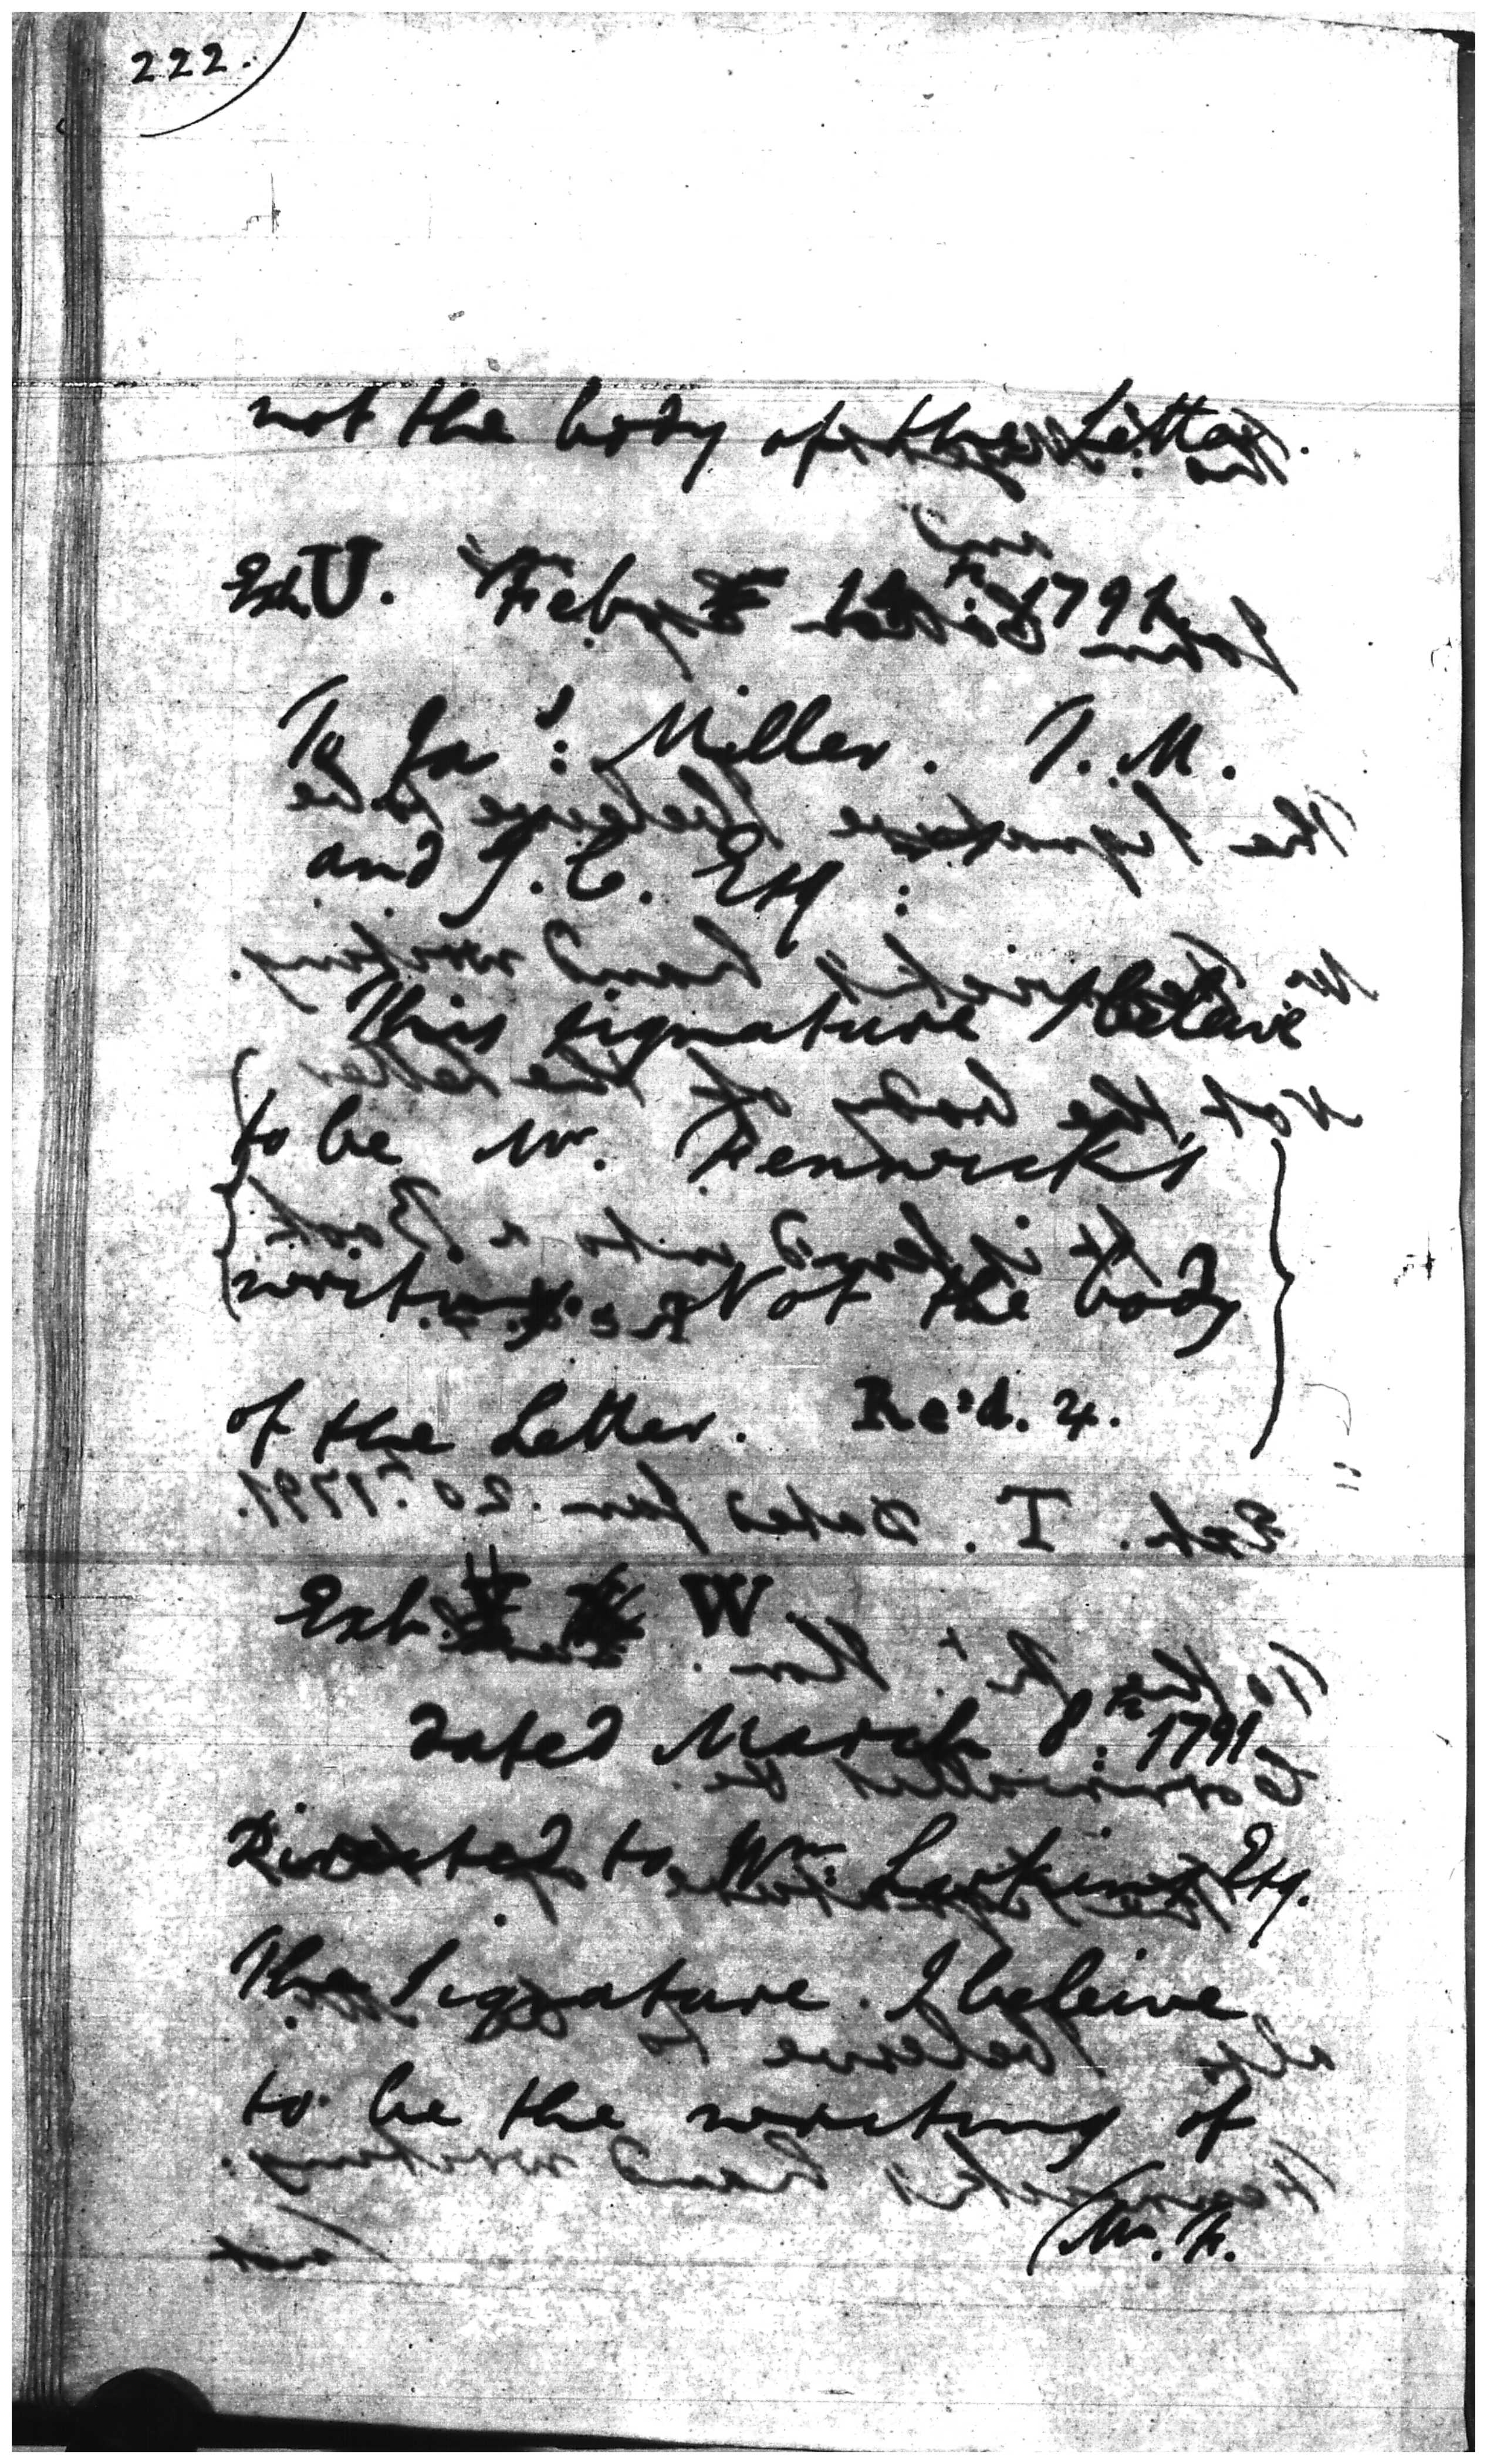 222.
not the body of the Letter.
Exh. U. Feby 1791.
To Jas: Miller. T. M.
and J. C. Esq:
This signature I beleive
to be Mr. Fenwicks
writing. Not the body
of the Letter. Re'd. 4.
Exh. W.
dated March 8th: 1791.
Directed to Wm: Larkins Esq.
The Signature I beleive
to be the writing of
Mr. F.